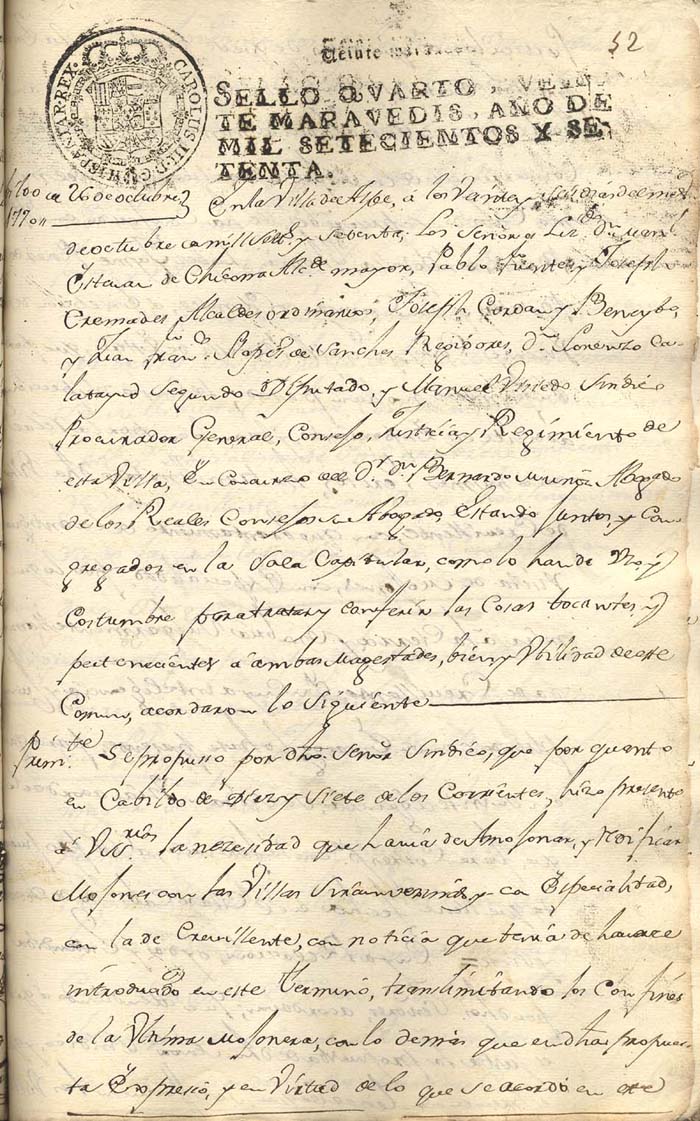 52
Veinte maravedis
SELLO QVARTO, VEIN
TE MARAVEDIS, AÑO DE
MIL SETECIENTOS Y SE
TENTA.
CAROLUS III. D. G. HISPANIAR. REX.
26 de octubre
1770
En la Villa de Aspe, á los Veinte y seis dias del mes
de octubre de mill Sett.s y Setenta, Los Señores Liz.do Dn. Man.l
Estevan de Chicorra Alc.de mayor, Pablo Fuentes y Joseph
Cremades Alcaldes ordinarios, Joseph Cordan y Beneyto,
y Juan Fran.co Lopes de Sanches Regidores, Dn. Lorenzo Ca-
latayud Segundo Diputado, y Manuel Sindico
Procurador General, Consejo, Justicia y Regimiento de
esta Villa, En Concurso del Dr. Dn. Bernardo Muñoz Abogado
de los Reales Consejos su Abogado, Estando Juntos, y Con-
gregados en la Sala Capitular, como lo han de Uso, y
Costumbre para tratar y conferir las Cosas tocantes y
pertenecientes á ambas Magestades, bien y Utilidad de este
Comun, acordaron lo Siguiente
Prim.te Se propuso por dho. Señor Sindico, que por quanto
en Cabildo de Diez y Siete de los Corrientes, hizo presente
á VSS.rias la nezesidad que havia de Amojonar, y Reificar
Mojones con las Villas Sircunvezinas y con Especialidad,
con la de Crevillente, con noticia que tenia de haverse
introduzido en este Termino, translimitando los Confines
de la Ultima Mojonera, con lo demás que en dha. propues-
ta Expresó, y en Virtud de lo que Se acordó en este